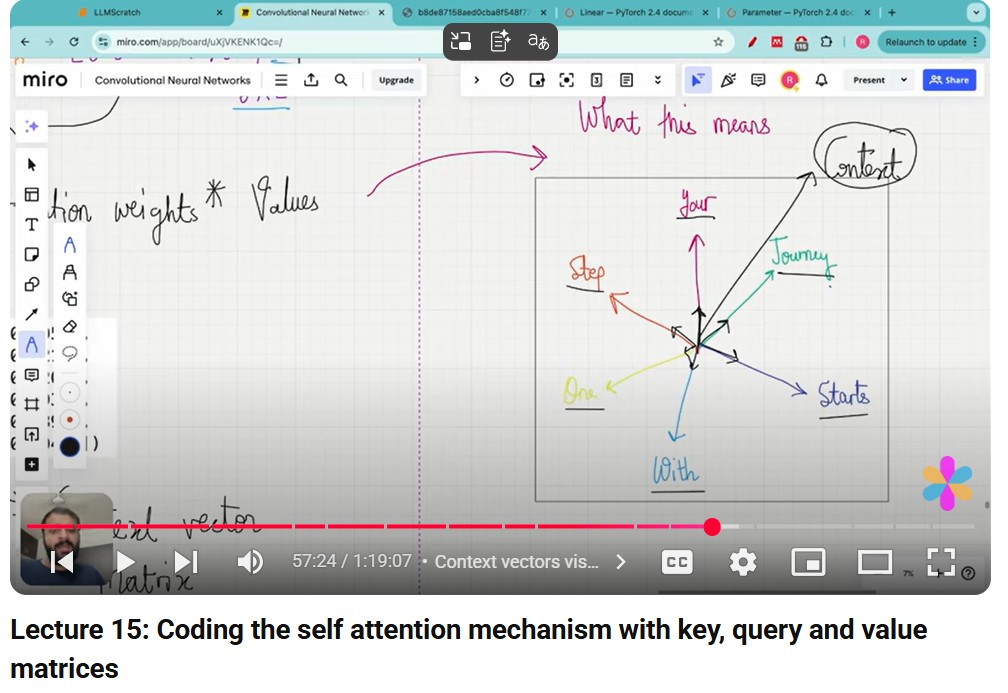 LLMScratch
Convolutional Neural Networ
b8de87158aed0cba8f548f7
Linear — PyTorch 2.4 docume
Parameter — PyTorch 2.4 doc
miro.com/app/board/uXjVKENK1Qc=/
Relaunch to update
miro
Convolutional Neural Networks
Upgrade
Present
Share
What this means
Context
tion weights * Values
Your
Journey
Step
One
Starts
With
text vector
Matrix
57:24 / 1:19:07 • Context vectors vis...
CC
7%
Lecture 15: Coding the self attention mechanism with key, query and value
matrices